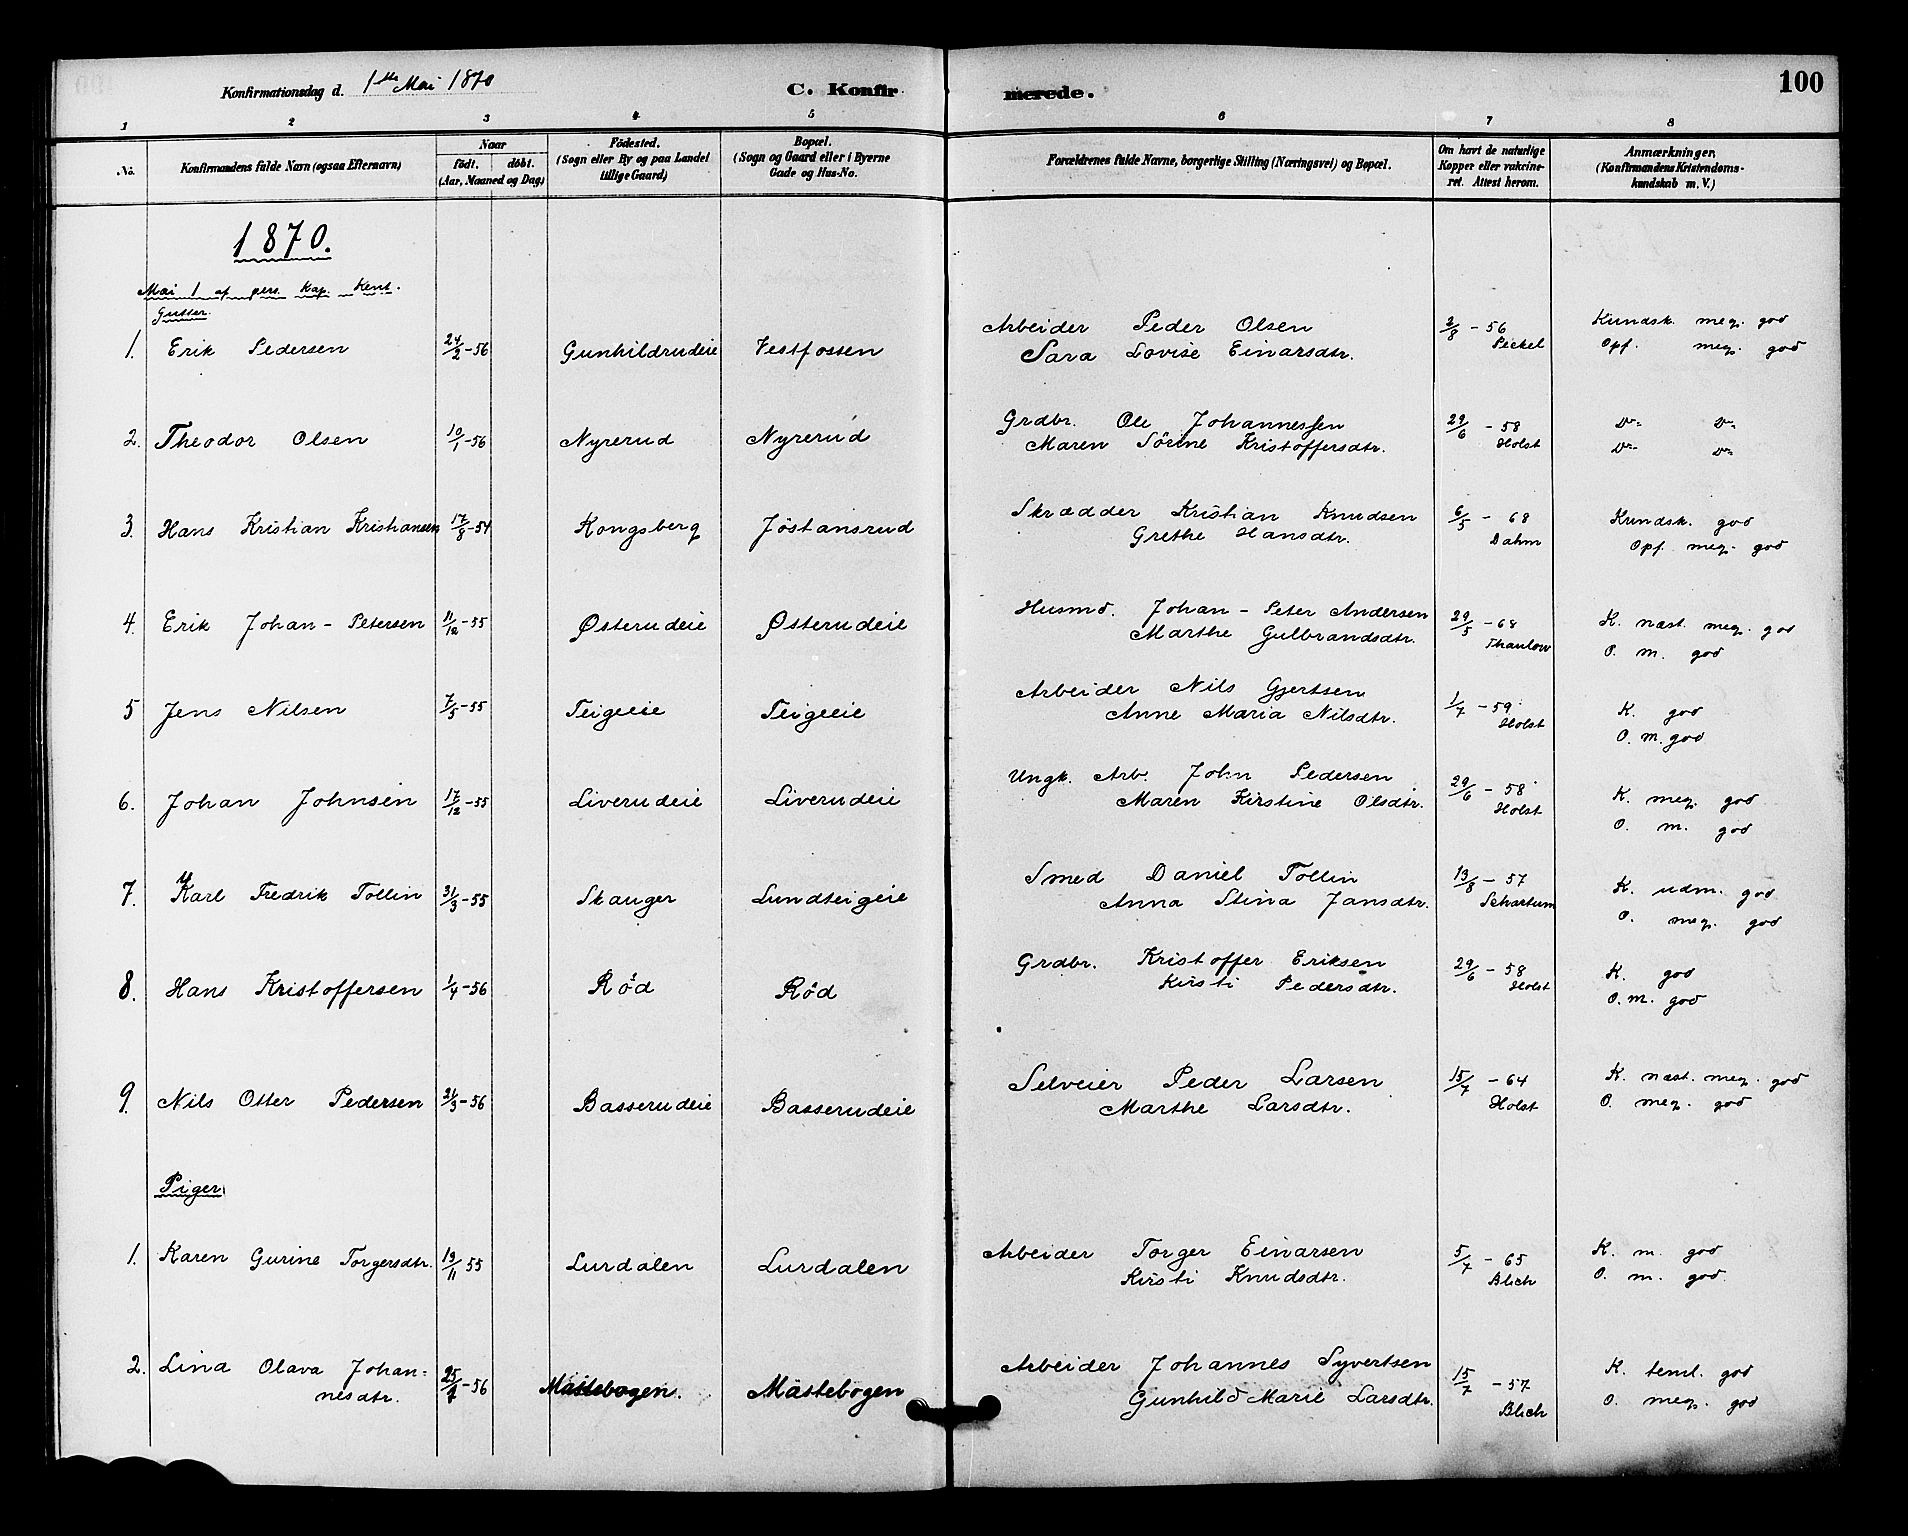 Konfirmationsdag d. 1ste Mai 1870
C. Konfirmerede.
100
1 2 3 4 5 6 7 8
No.
Konfirmandens fulde Navn (ogsaa Efternavn)
Naar
födt. döbt.
(Aar, Maaned og Dag)
Födested.
(Sogn eller By og paa Landet
tillige Gaard)
Bopæl.
(Sogn og Gaard eller i Byerne
Gade og Hus-No.
Forældrenes fulde Navne, borgerlige Stilling (Næringsvei) og Bopæl.
Om havt de naturlige
Kopper eller vakcine-
ret. Attest herom.
Anmærkninger,
(Konfirmandens Kristendoms-
kundskab m. V.)
1870.
Mai 1 af pers. Kap. Kent.
Gutter.
1. Erik Pedersen 24/2-56 Gunhildrudeie Vestfossen Arbeider Peder Olsen 2/8 - 56 Kundsk. meg. god
Sara Lovise Einarsdtr. Peckel Opf. meg. god
2. Theodor Olsen 10/1-56 Nyrerud Nyrerud Grdbr. Ole Johannessen 29/6 - 58 Do Do
Maren Sørine Kristoffersdtr. Holst Do Do
3. Hans Kristian Kristiansen 17/8-54 Kongsberg Jøstansrud Skrædder Kristian Knudsen 6/5 - 68 Kundsk. god
Grethe Hansdtr. Dahm Opf. meg. god
4. Erik Johan-Petersen 11/12-55 Østerudeie Østerudeie Husmd. Johan-Peter Andersen 29/5 - 68 K. næst. meg. god
Marthe Gulbrandsdtr. Thaulow O. m. god
5 Jens Nilsen 7/5-55 Teigeeie Teigeeie Arbeider Nils Gjertsen 1/7 - 59 K. god
Anne Maria Nilsdtr. Holst O. m. god
6. Johan Johnsen 17/12-55 Liverudeie Liverudeie Ungk. Arb. John Pedersen 29/6 - 58 K. meg. god
Maren Kirstine Olsdtr. Holst O. m. god
7. Karl Fredrik Tollin 31/3-55 Skauger Lundteigeie Smed Daniel Tollin 13/8 - 57 K. udm. god
Anna Stina Jansdtr. Schartum O. meg. god
8. Hans Kristoffersen 1/4-56 Rød Rød Grdbr. Kristoffer Eriksen 29/6 - 58 K. god
Kirsti Pedersdtr. Holst O. m. god
9. Nils Otter Pedersen 21/3-56 Basserudeie Basserudeie Selveier Peder Larsen 15/7 - 64 K. næst. meg. god
Marthe Larsdtr. Holst O. meg. god
Piger
1. Karen Gurine Torgersdtr. 19/11 55 Lurdalen Lurdalen Arbeider Torger Einarsen 5/7 - 65 K. m. god
Kirsti Knudsdtr. Blich O. m. god
2. Lina Olava Johan- 25/-56 Mastebogen. Mastebogen Arbeider Johannes Syvertsen 15/7 - 57 K. teml. god
nesdtr. Gunhild Marie Larsdtr. Blich O. meg. god